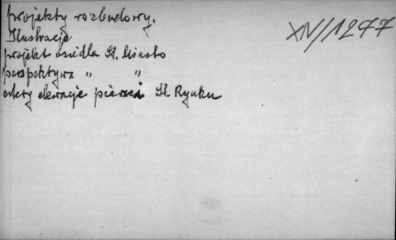 projekty rozbudowy.
XIV/1277
Ilustracje
projekt osiedla St. Miasto
perspektywa " "
cztery elewacje pierzei St Rynku